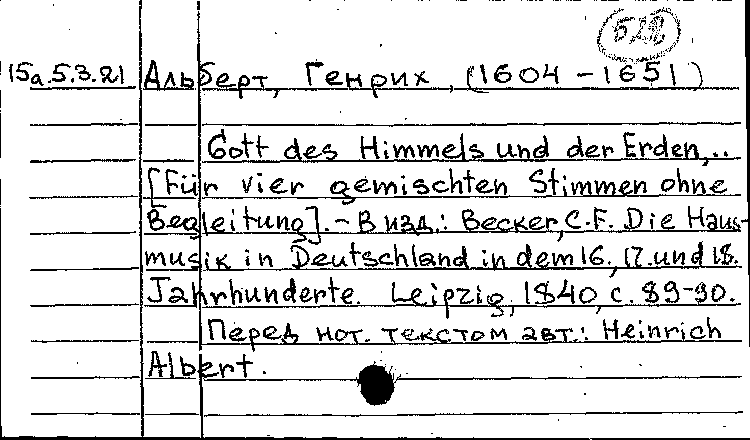 528
15a.5.3.21 Альберт, Генрих, (1604-1651)
Gott des Himmels und der Erden,..
[Für vier gemischten Stimmen ohne
Begleitung]. - В изд.: Becker, C.F. Die Haus-
musik in Deutschland in dem 16., 17. und 18.
Jahrhunderte. Leipzig, 1840, с. 89-90.
Перед нот. текстом авт.: Heinrich
Albert.